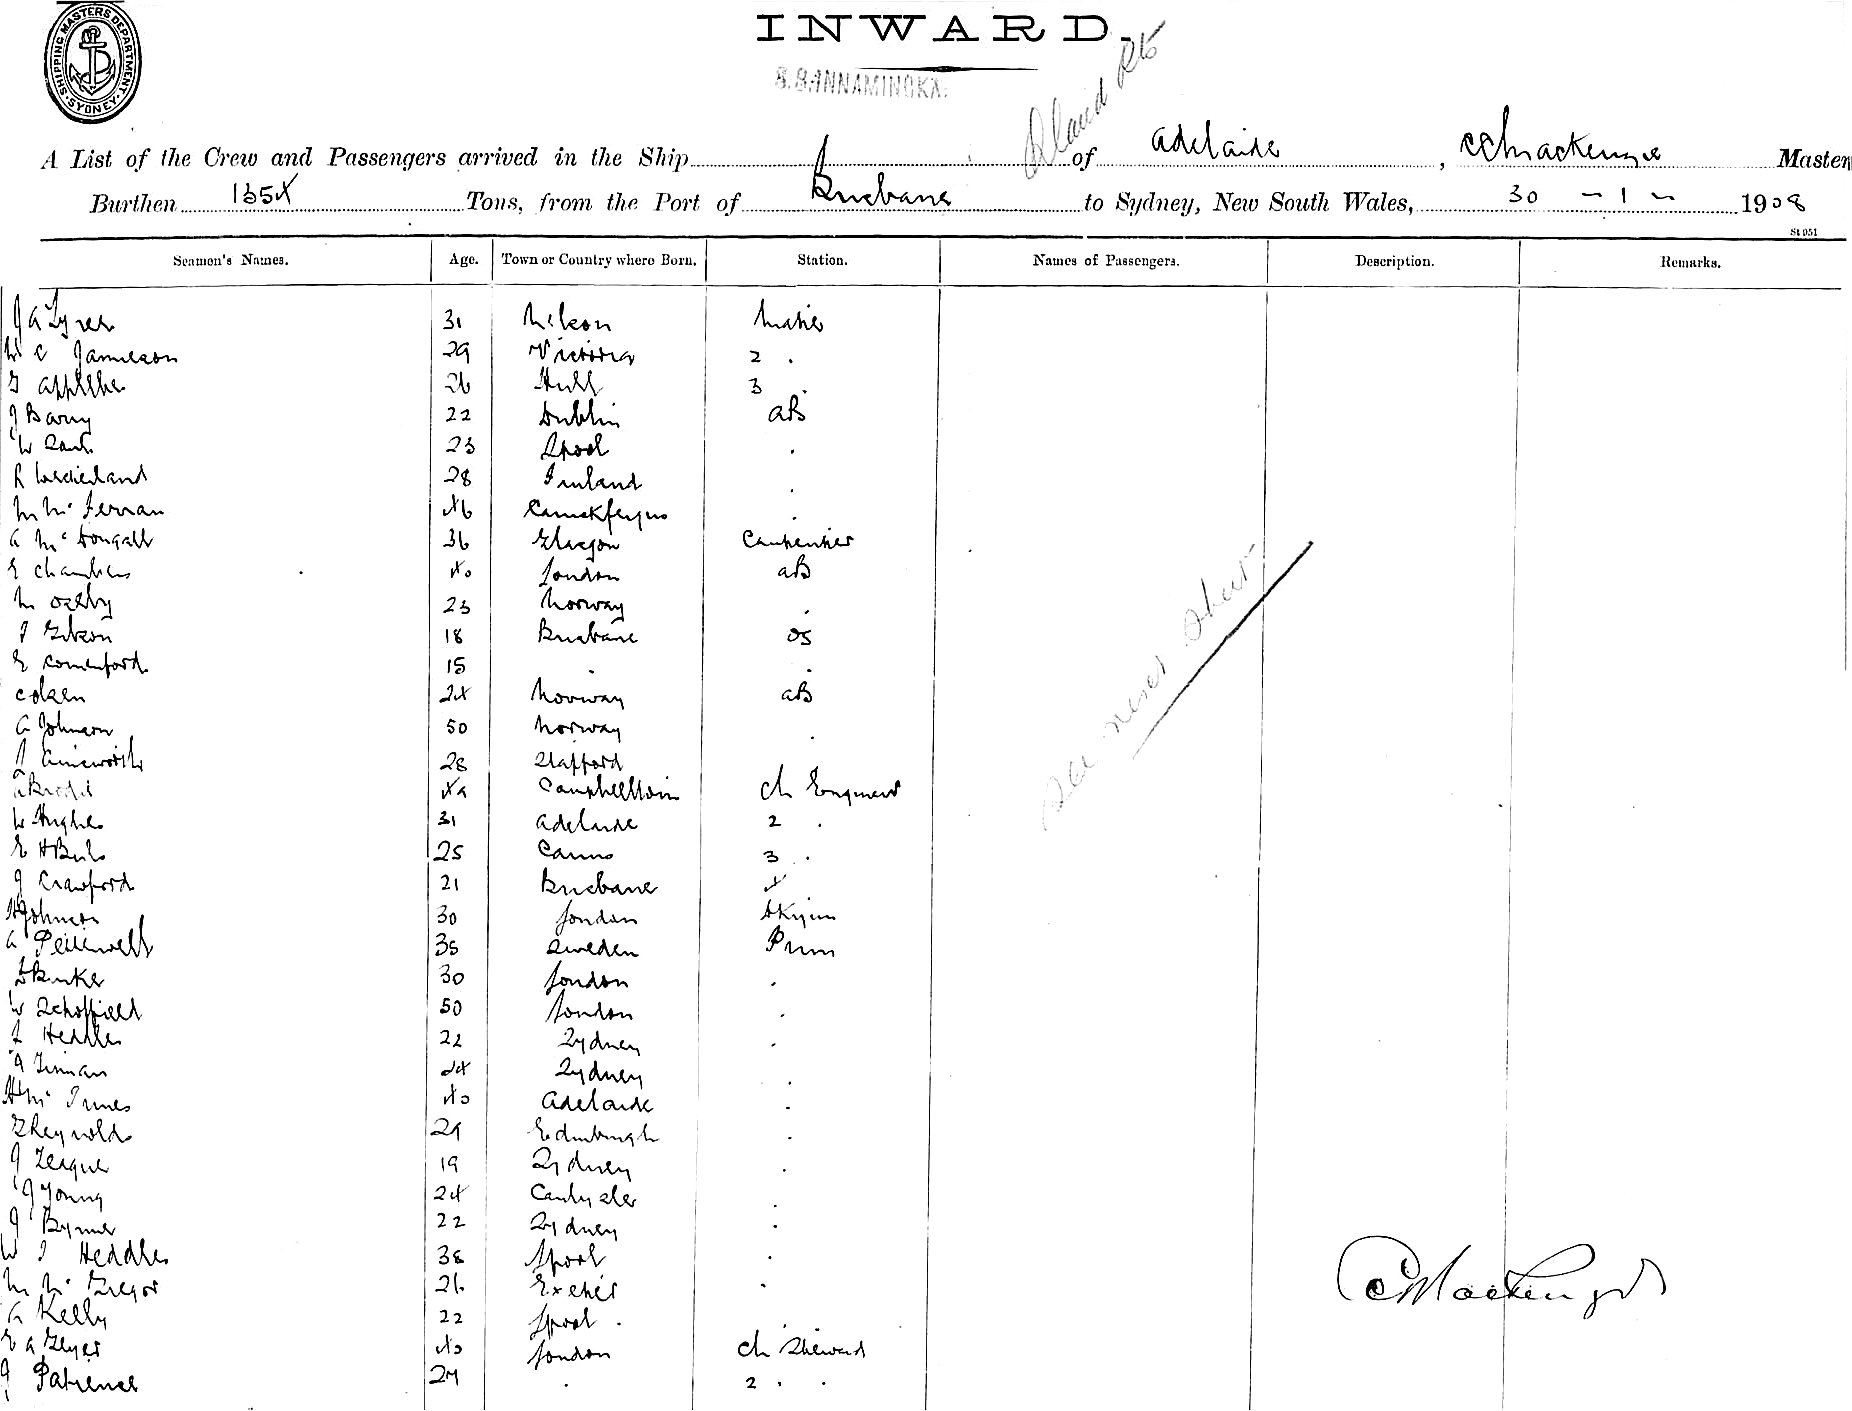 SHIPPING MASTERS DEPARTMENT. SYDNEY
INWARD.
S.S. INNAMINCKA.
A List of the Crew and Passengers arrived in the Ship of Adelaide, Mackenzie Master
Burthen 1354 Tons, from the Port of Brisbane to Sydney, New South Wales, 30 - 1 - 1908
St 951
Seamen's Names. Age. Town or Country where Born. Station. Names of Passengers. Description. Remarks.
J A Tyrer 31 Nelson Mate
W C Jamieson 29 Victoria 2 .
26 Hull 3 .
J Barry 22 Dublin AB
W 23 Lpool .
R 28 Finland .
M Mc Ferran 46 Carrickfergus .
A Mc Dougall 36 Glasgow Carpenter
E Chambers 40 London AB
M 23 Norway .
J Gibson 18 Brisbane OS
E Comerford 15 . .
C Olsen 24 Norway AB
A Johnson 50 Norway .
J Ainsworth 28 Stafford
A Brodie 49 Campbelltown Ch Engineer
W Hughes 31 Adelaide 2 .
E H 25 Cairns 3 .
J Crawford 21 Brisbane 4
H Johnson 30 London Dkyman
A 35 Sweden Firem
30 London .
W Schoffield 50 London .
J Heddles 22 Sydney .
24 Sydney .
H Mc Innes 40 Adelaide .
G Reynolds 29 Edinburgh .
J Teague 19 Sydney .
J Young 24 .
J Byrne 22 Sydney .
W J Heddles 38 Lpool .
M Mc Gregor 26 Exeter .
A Kelly 22 Lpool .
E A Geyer 40 London Ch Steward
J Patience 27 . 2 . .
See next sheet
C Mackenzie